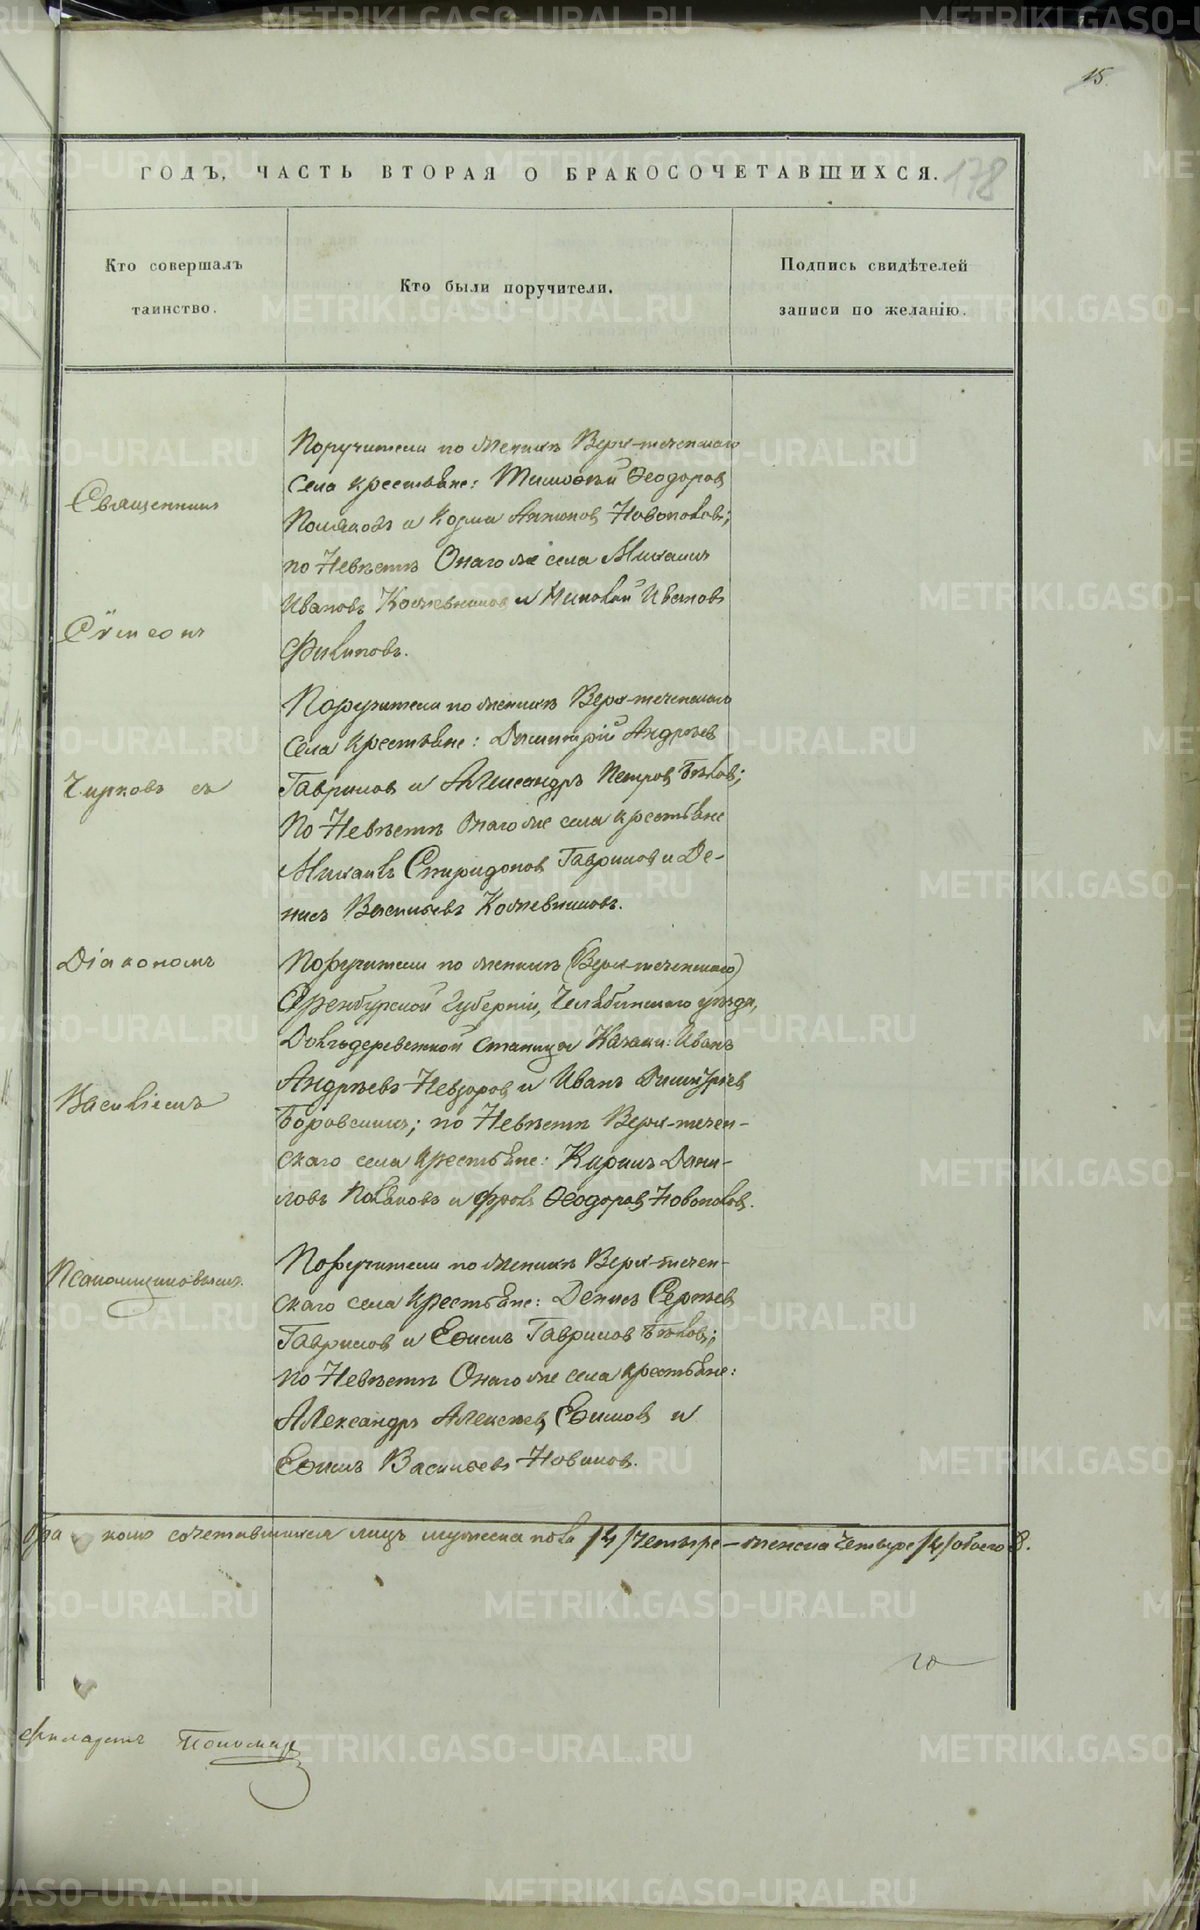 15.
ГОДЪ, ЧАСТЬ ВТОРАЯ О БРАКОСОЧЕТАВШИХСЯ.
178
Кто совершалъ
таинство.
Кто были поручители.
Подпись свидѣтелей
записи по желанію.
Священникъ
Сѵмеонъ
Чирковъ съ
Діакономъ
Василіемъ
Псаломщиковымъ.
Поручители по женихѣ Верх-теченскаго
села крестьяне: Тимоѳей Ѳеодоровъ
Поляковъ и Козма Антоновъ Новополовъ;
по Невѣстѣ Онаго же села Михаилъ
Ивановъ Кожевниковъ и Николай Ивановъ
Филиповъ.
Поручители по женихѣ Верх-теченскаго
села крестьяне: Димитрій Андреевъ
Гавриловъ и Александръ Петровъ Бѣловъ;
по Невѣстѣ Онаго же села крестьяне
Михаилъ Спиридоновъ Гавриловъ и Де-
нисъ Васильевъ Кожевниковъ.
Поручители по женихѣ (Верх-теченскаго)
Оренбурской Губерніи, Челябинскаго уѣзда,
Долгодеревенской станицы Казаки: Иванъ
Андреевъ Невзоровъ и Иванъ Димитріев
Боровскихъ; по Невѣстѣ Верх-течен-
скаго села крестьяне: Кирилъ Дани-
ловъ Поляковъ и Фролъ Ѳеодоровъ Новополовъ.
Поручители по женихѣ Верх-течен-
скаго села крестьяне: Денисъ Сергѣевъ
Гавриловъ и Еѳимъ Гавриловъ Бѣловъ;
по Невѣстѣ Онаго же села крестьяне:
Александръ Алексѣевъ Еѳимовъ и
Еѳимъ Васильевъ Новиковъ.
сочетавшихся лицъ мужеска пола /4/ четыре – женска четыре /4/ обоего 8.
Филаретъ Пономар
METRIKI.GASO-URAL.RU